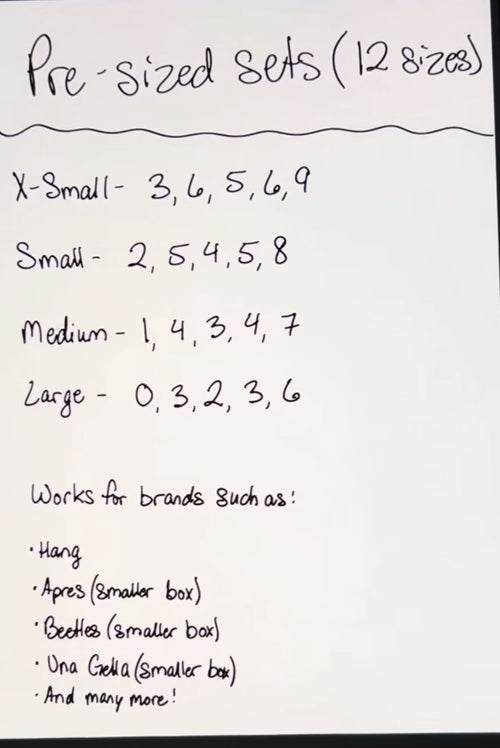 Pre-sized sets (12 sizes)
X-Small- 3, 6, 5, 6, 9
Small - 2, 5, 4, 5, 8
Medium - 1, 4, 3, 4, 7
Large - 0, 3, 2, 3, 6
Works for brands such as:
• Hang
• Apres (smaller box)
• Beetles (smaller box)
• Una Gella (smaller box)
• And many more!